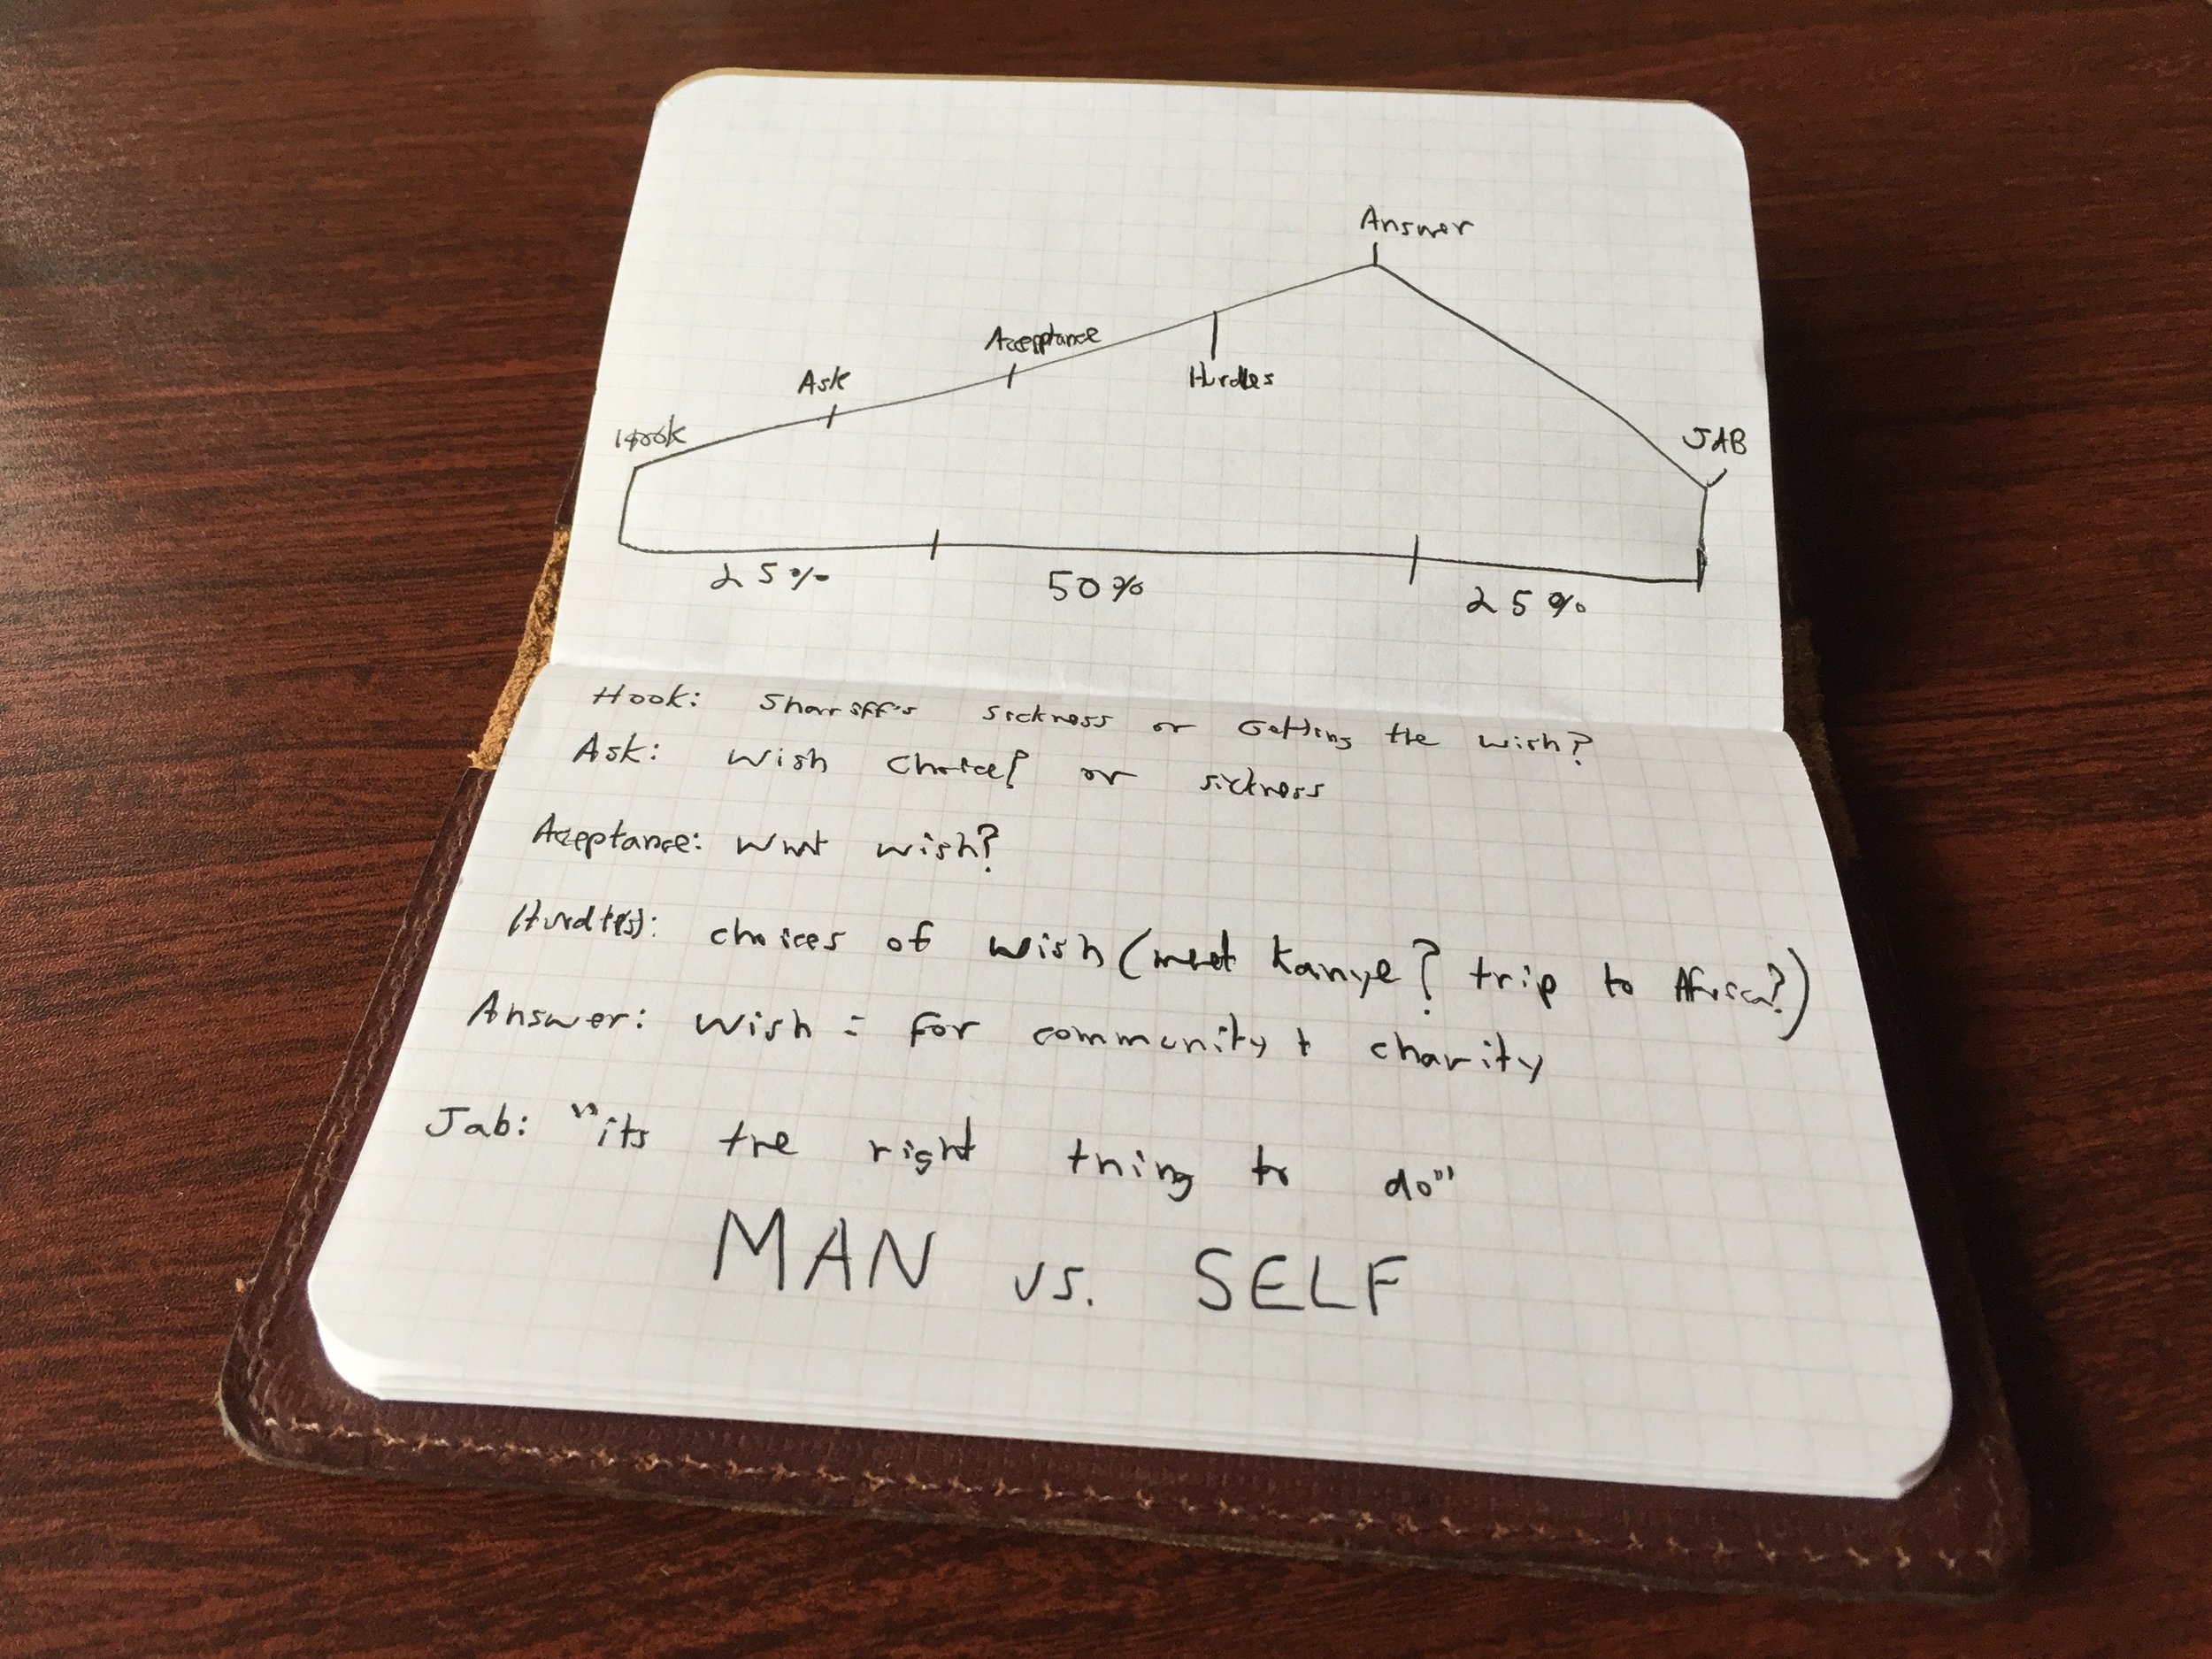 Answer
Acceptance
Hurdles
Ask
Hook
JAB
25%
50%
25%
Hook: Shariff's sickness or Getting the wish?
Ask: Wish Choice? or sickness
Acceptance: What wish?
Hurdle(s): choices of wish (meet Kanye? trip to Africa?)
Answer: Wish = for community + charity
Jab: "its the right thing to do"
MAN vs. SELF